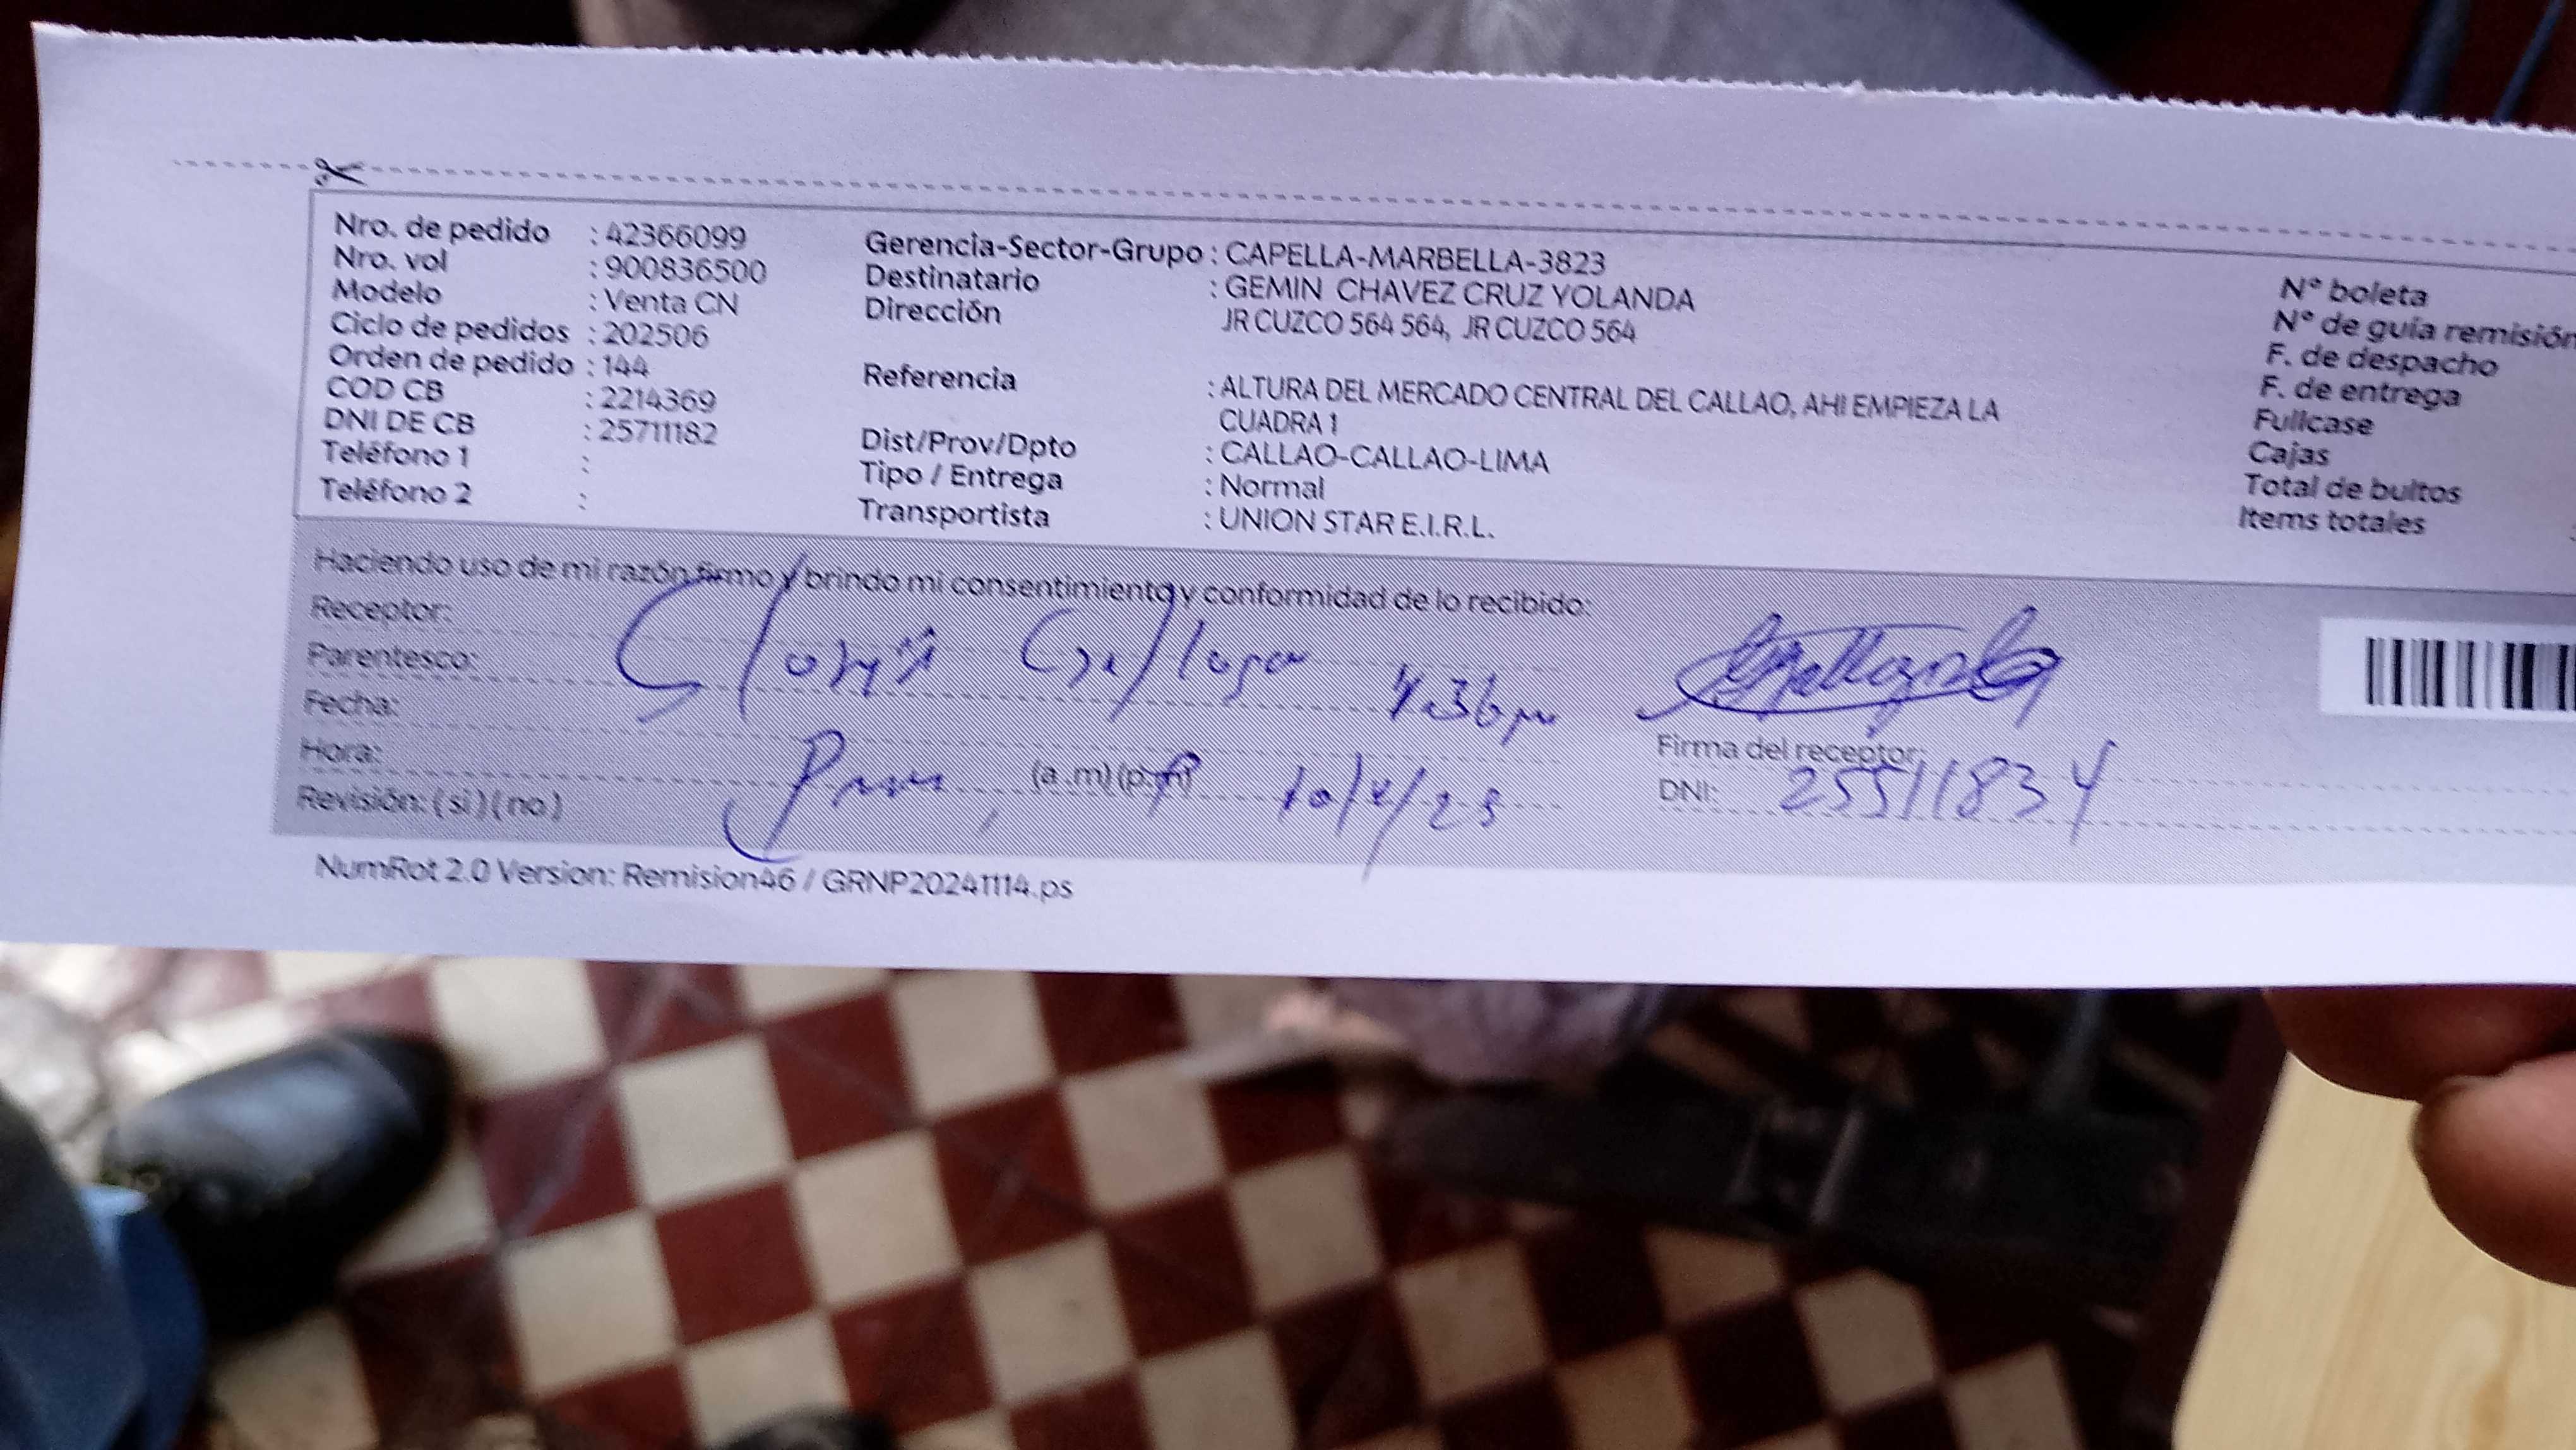 Nro. de pedido : 42366099
Nro. vol : 900836500
Modelo : Venta CN
Ciclo de pedidos : 202506
Orden de pedido : 144
COD CB : 2214369
DNI DE CB : 25711182
Teléfono 1 :
Teléfono 2 :
Gerencia-Sector-Grupo : CAPELLA-MARBELLA-3823
Destinatario : GEMIN CHAVEZ CRUZ YOLANDA
Dirección JR CUZCO 564 564, JR CUZCO 564
Referencia : ALTURA DEL MERCADO CENTRAL DEL CALLAO, AHI EMPIEZA LA
CUADRA 1
Dist/Prov/Dpto : CALLAO-CALLAO-LIMA
Tipo / Entrega : Normal
Transportista : UNION STAR E.I.R.L.
N° boleta
N° de guía remisión
F. de despacho
F. de entrega
Fullcase
Cajas
Total de bultos
Items totales
Haciendo uso de mi razón firmo y brindo mi consentimiento y conformidad de lo recibido:
Receptor:
Parentesco:
Fecha:
Hora: (a.m) (p.m)
10/4/25
Revisión: (si) (no)
Firma del receptor:
DNI: 25511834
NumRot 2.0 Version: Remision46 / GRNP20241114.ps